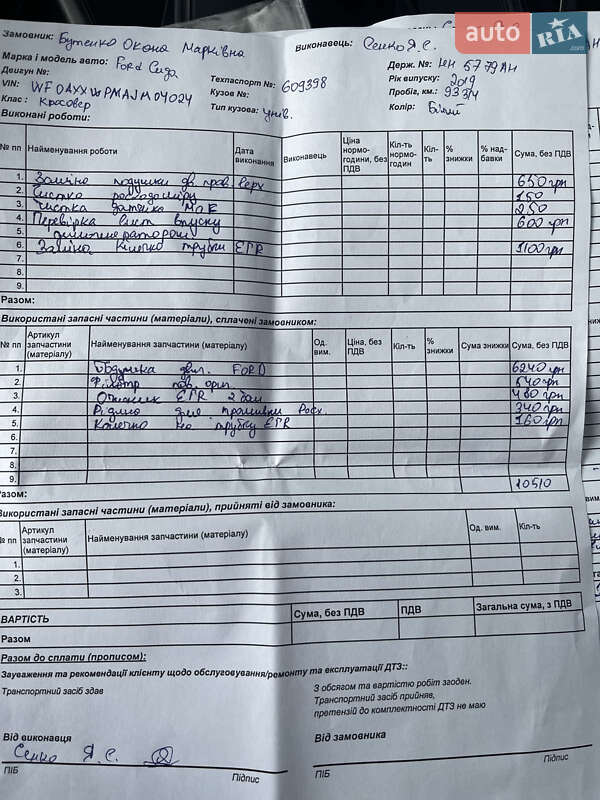 Замовник: Бутенко Оксана Марківна
Виконавець: Сенко Я.Є.
auto RIA.com
Марка і модель авто: Ford Cuga
Держ. №: НН 5779АН
Двигун №:
Техпаспорт №: 609398
Рік випуску: 2019
VIN: WF0AXXWPMAJM04024
Кузов №:
Пробіг, км.: 93374
Клас: Красовер
Тип кузова: унів.
Колір: Білий
Виконані роботи:
№ пп Найменування роботи Дата виконання Виконавець Ціна нормо-години, без ПДВ Кіл-ть нормо-годин Кіл-ть % знижки % над-бавки Сума, без ПДВ
1. Заміна подушки дв. прав. верх 650 грн
2. Чистка расходоміру 150
3. Чистка датчика МАР 250
4. Перевірка сист впуску 600 грн
5. димогенератором
6. Заміна кілечка трубки EГR 1100 грн
7.
8.
9.
Разом:
Використані запасні частини (матеріали), сплачені замовником:
№ пп Артикул запчастини (матеріалу) Найменування запчастини (матеріалу) Од. вим. Ціна, без ПДВ Кіл-ть % знижки Сума знижки Сума, без ПДВ
1. Подушка двиг. FORD 6240 грн
2. Фільтр пов. ориг. 540 грн
3. Очисник EГR 2 бал 480 грн
4. Рідина для промивки Расх. 340 грн
5. Колечко на трубку EГR 160 грн
6.
7.
8.
9.
Разом: 10510
Використані запасні частини (матеріали), прийняті від замовника:
№ пп Артикул запчастини (матеріалу) Найменування запчастини (матеріалу) Од. вим. Кіл-ть
1.
2.
3.
ВАРТІСТЬ Сума, без ПДВ ПДВ Загальна сума, з ПДВ
Разом
Разом до сплати (прописом):
Зауваження та рекомендації клієнту щодо обслуговування/ремонту та експлуатації ДТЗ::
Транспортний засіб здав
З обсягом та вартістю робіт згоден.
Транспортний засіб прийняв,
претензій до комплектності ДТЗ не маю
Від виконавця
Від замовника
Сенко Я.Є.
ПІБ Підпис
ПІБ Підпис